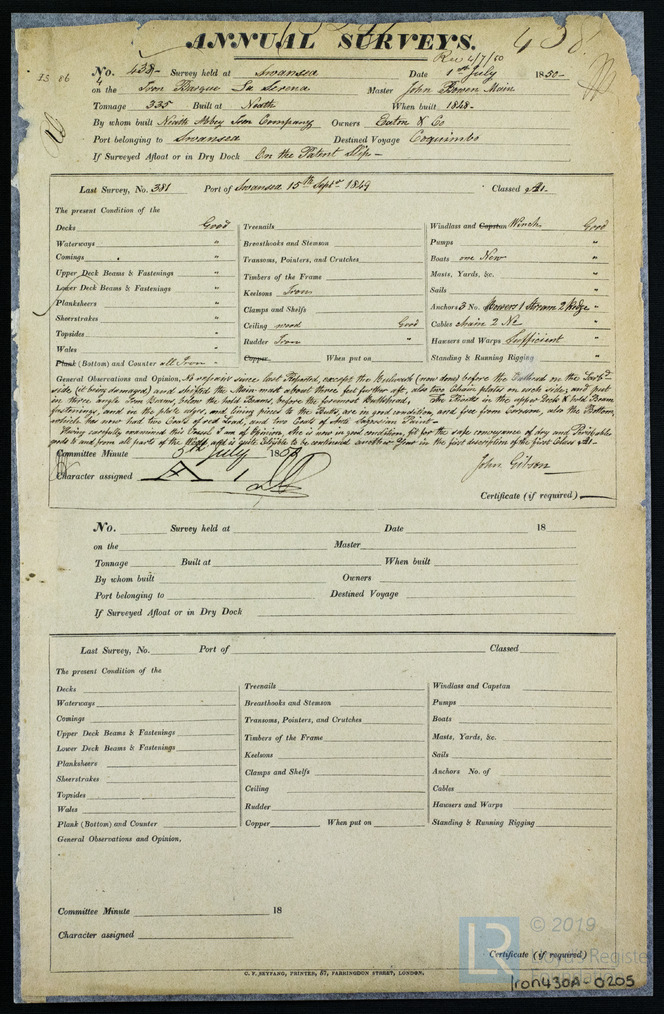 ANNUAL SURVEYS.
438
Rec 4/7/50
33 86
No. 438 Survey held at Swansea Date 1st July 1850
on the Iron Barque La Serena Master John Bowen Main
Tonnage 335 Built at Neath When built 1848
By whom built Neath Abbey Iron Company Owners Eaton & Co
Port belonging to Swansea Destined Voyage Coquimbo
If Surveyed Afloat or in Dry Dock On the Patent Slip
Last Survey, No. 381 Port of Swansea 15th Septr 1849 Classed A1.
The present Condition of the
Decks Good
Waterways "
Comings "
Upper Deck Beams & Fastenings "
Lower Deck Beams & Fastenings "
Planksheers "
Sheerstrakes "
Topsides "
Wales "
Plank (Bottom) and Counter all Iron "
Treenails
Breasthooks and Stemson
Transoms, Pointers, and Crutches
Timbers of the Frame
Keelsons Iron
Clamps and Shelfs
Ceiling wood Good
Rudder Iron "
Copper When put on
Windlass and Capstan Winch Good
Pumps "
Boats one New "
Masts, Yards, &c. "
Sails "
Anchors 3 No. Bowers 1 Stream 2 Kedge "
Cables chain 2 No "
Hawsers and Warps Sufficient "
Standing & Running Rigging "
General Observations and Opinion, No repairs since last Reported, except the Bulwark (now done) before the on the Starbd
side (it being damaged) and shifted the Main mast about three feet further aft, also two Chain plates on each side, and put
in three angle Iron Beams, below the hold Beams, before the foremost Bulkhead, The Thirds in the upper Deck & hold Beam
fastenings, and in the plate edges, and lining pieces to the Butts, are in good condition, and free from Corrosion, also the Bottom,
which has now had two Coats of red Lead, and two Coats of Paint
Having carefully examined this Vessel I am of Opinion, she is now in good condition, fit for the safe conveyance of dry and Perishable
goods to and from all parts of the World and is quite Eligible to be continued another Year in the first description of the first Class A1.
Committee Minute 5th July 1850
John Gibson
Character assigned A 1
Certificate (if required)
No. Survey held at Date 18
on the Master
Tonnage Built at When built
By whom built Owners
Port belonging to Destined Voyage
If Surveyed Afloat or in Dry Dock
Last Survey, No. Port of Classed
The present Condition of the
Decks
Waterways
Comings
Upper Deck Beams & Fastenings
Lower Deck Beams & Fastenings
Planksheers
Sheerstrakes
Topsides
Wales
Plank (Bottom) and Counter
Treenails
Breasthooks and Stemson
Transoms, Pointers, and Crutches
Timbers of the Frame
Keelsons
Clamps and Shelfs
Ceiling
Rudder
Copper When put on
Windlass and Capstan
Pumps
Boats
Masts, Yards, &c.
Sails
Anchors No. of
Cables
Hawsers and Warps
Standing & Running Rigging
General Observations and Opinion,
Committee Minute 18
Character assigned
Certificate (if required)
C. F. SEYFANG, PRINTER, 57, FARRINGDON STREET, LONDON.
LR
© 2019
Lloyd's Register
Foundation
Iron430A-0205